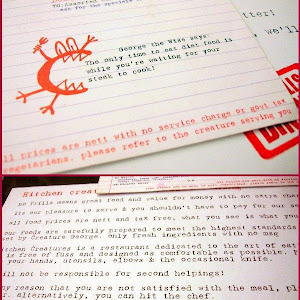 TO: Assorted
ask for the specials
George the Wize says:
The only time to eat diet food is
while you're waiting for your
steak to cook!
tter!
we'll
all prices are nett with no service charge or govt tax
etarians. please refer to the creature serving you
Kitchen crea
no frills means great food and value for money with no extra
its our pleasure to serve & you shouldn't have to pay for
all food prices are nett and tax free, what you see is what
our foods are carefully prepared to meet the highest! standard,
set by Creature George. Only fresh ingredients with no
chen Creatures is a restaurant dedicated to the art of eat
is free of fuss and designed as comfortable as possible.
your hands, utensils, elbows & the occasional knife.
ill not be responsible for second helpings!
ny reason that you are not satisfied with the meal, pl
alternatively, you can hit the chef.